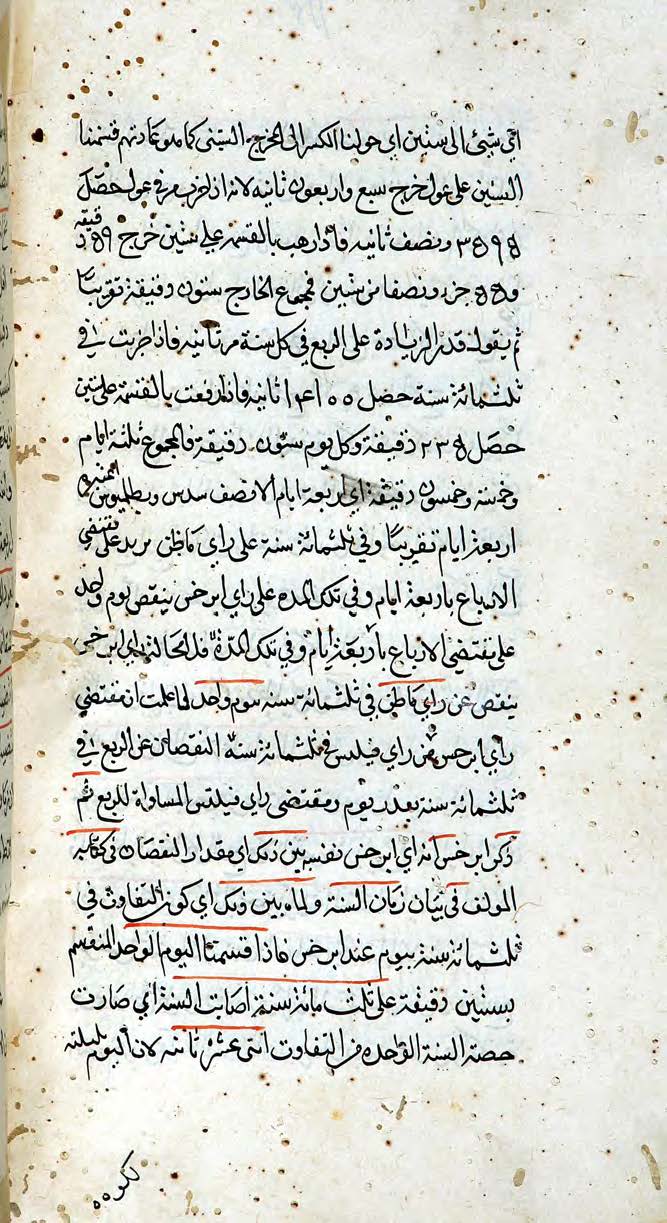 اي شئ الى ستين اي حولنا الكسر الى المخرج الستيني كما هو عادتهم قسمنا
الستين على عول خرج سبع واربعون ثانيه لانه اذا ضرب في عول حصل
٣٥٩٥ ونصف ثانيه فاذا رهب بالقسمة على ستين خرج ٥٩ دقيقه
و٥٥ جزء ونصفا من ستين فمجموع الخارج ستون دقيقة تقريبًا
ثم يقول قدر الزيادة على الربع في كل سنة مر ثانيه فاذا ضربت في
ثلثمائة سنة حصل ١٤١٠٠ ثانيه فاذا رفعت بالقسمة على ستين
حصل ٢٣٥ دقيقة وكل يوم ستون دقيقة فالمجموع ثلثة ايام
وخمسة وخمسون دقيقة اي اربعة ايام الا نصف سدس وبطلميوس
اربعة ايام تقريبًا وفي ثلثمائة سنة على راي كاطن يزيد على مقتضى
الارباع باربعة ايام وفي تلك المده على راي ابرخس ينقص يوم واحد
على مقتضى الارباع بأربعة ايام وفي تلك المدة راي ابرخس
ينقص عن راي كاطن في ثلثمائة سنه بيوم واحد لما علمت ان مقتضى
راي ابرخس راي فيلبس في ثلثمائة سنة النقصان عن الربع في
ثلثمائة سنة بعدد يوم ومقتضى راي فيلبس المساواة للربع ثم
ذكر ابرخس انه اي ابرخس نفسه بين ذلك اي مقدار النقصان في كتابه
المولف في بيان زمان السنة ولما بين ذلك اي كون التفاوت في
ثلثمائة سنة بيوم عند ابرخس فاذا قسمنا اليوم الواحد المنقسم
بستين دقيقة على ثلث مائة سنة أصابت السنة اي صارت
حصة السنة الواحده من التفاوت اثنى عشر ثانيه لان اليوم بليلته